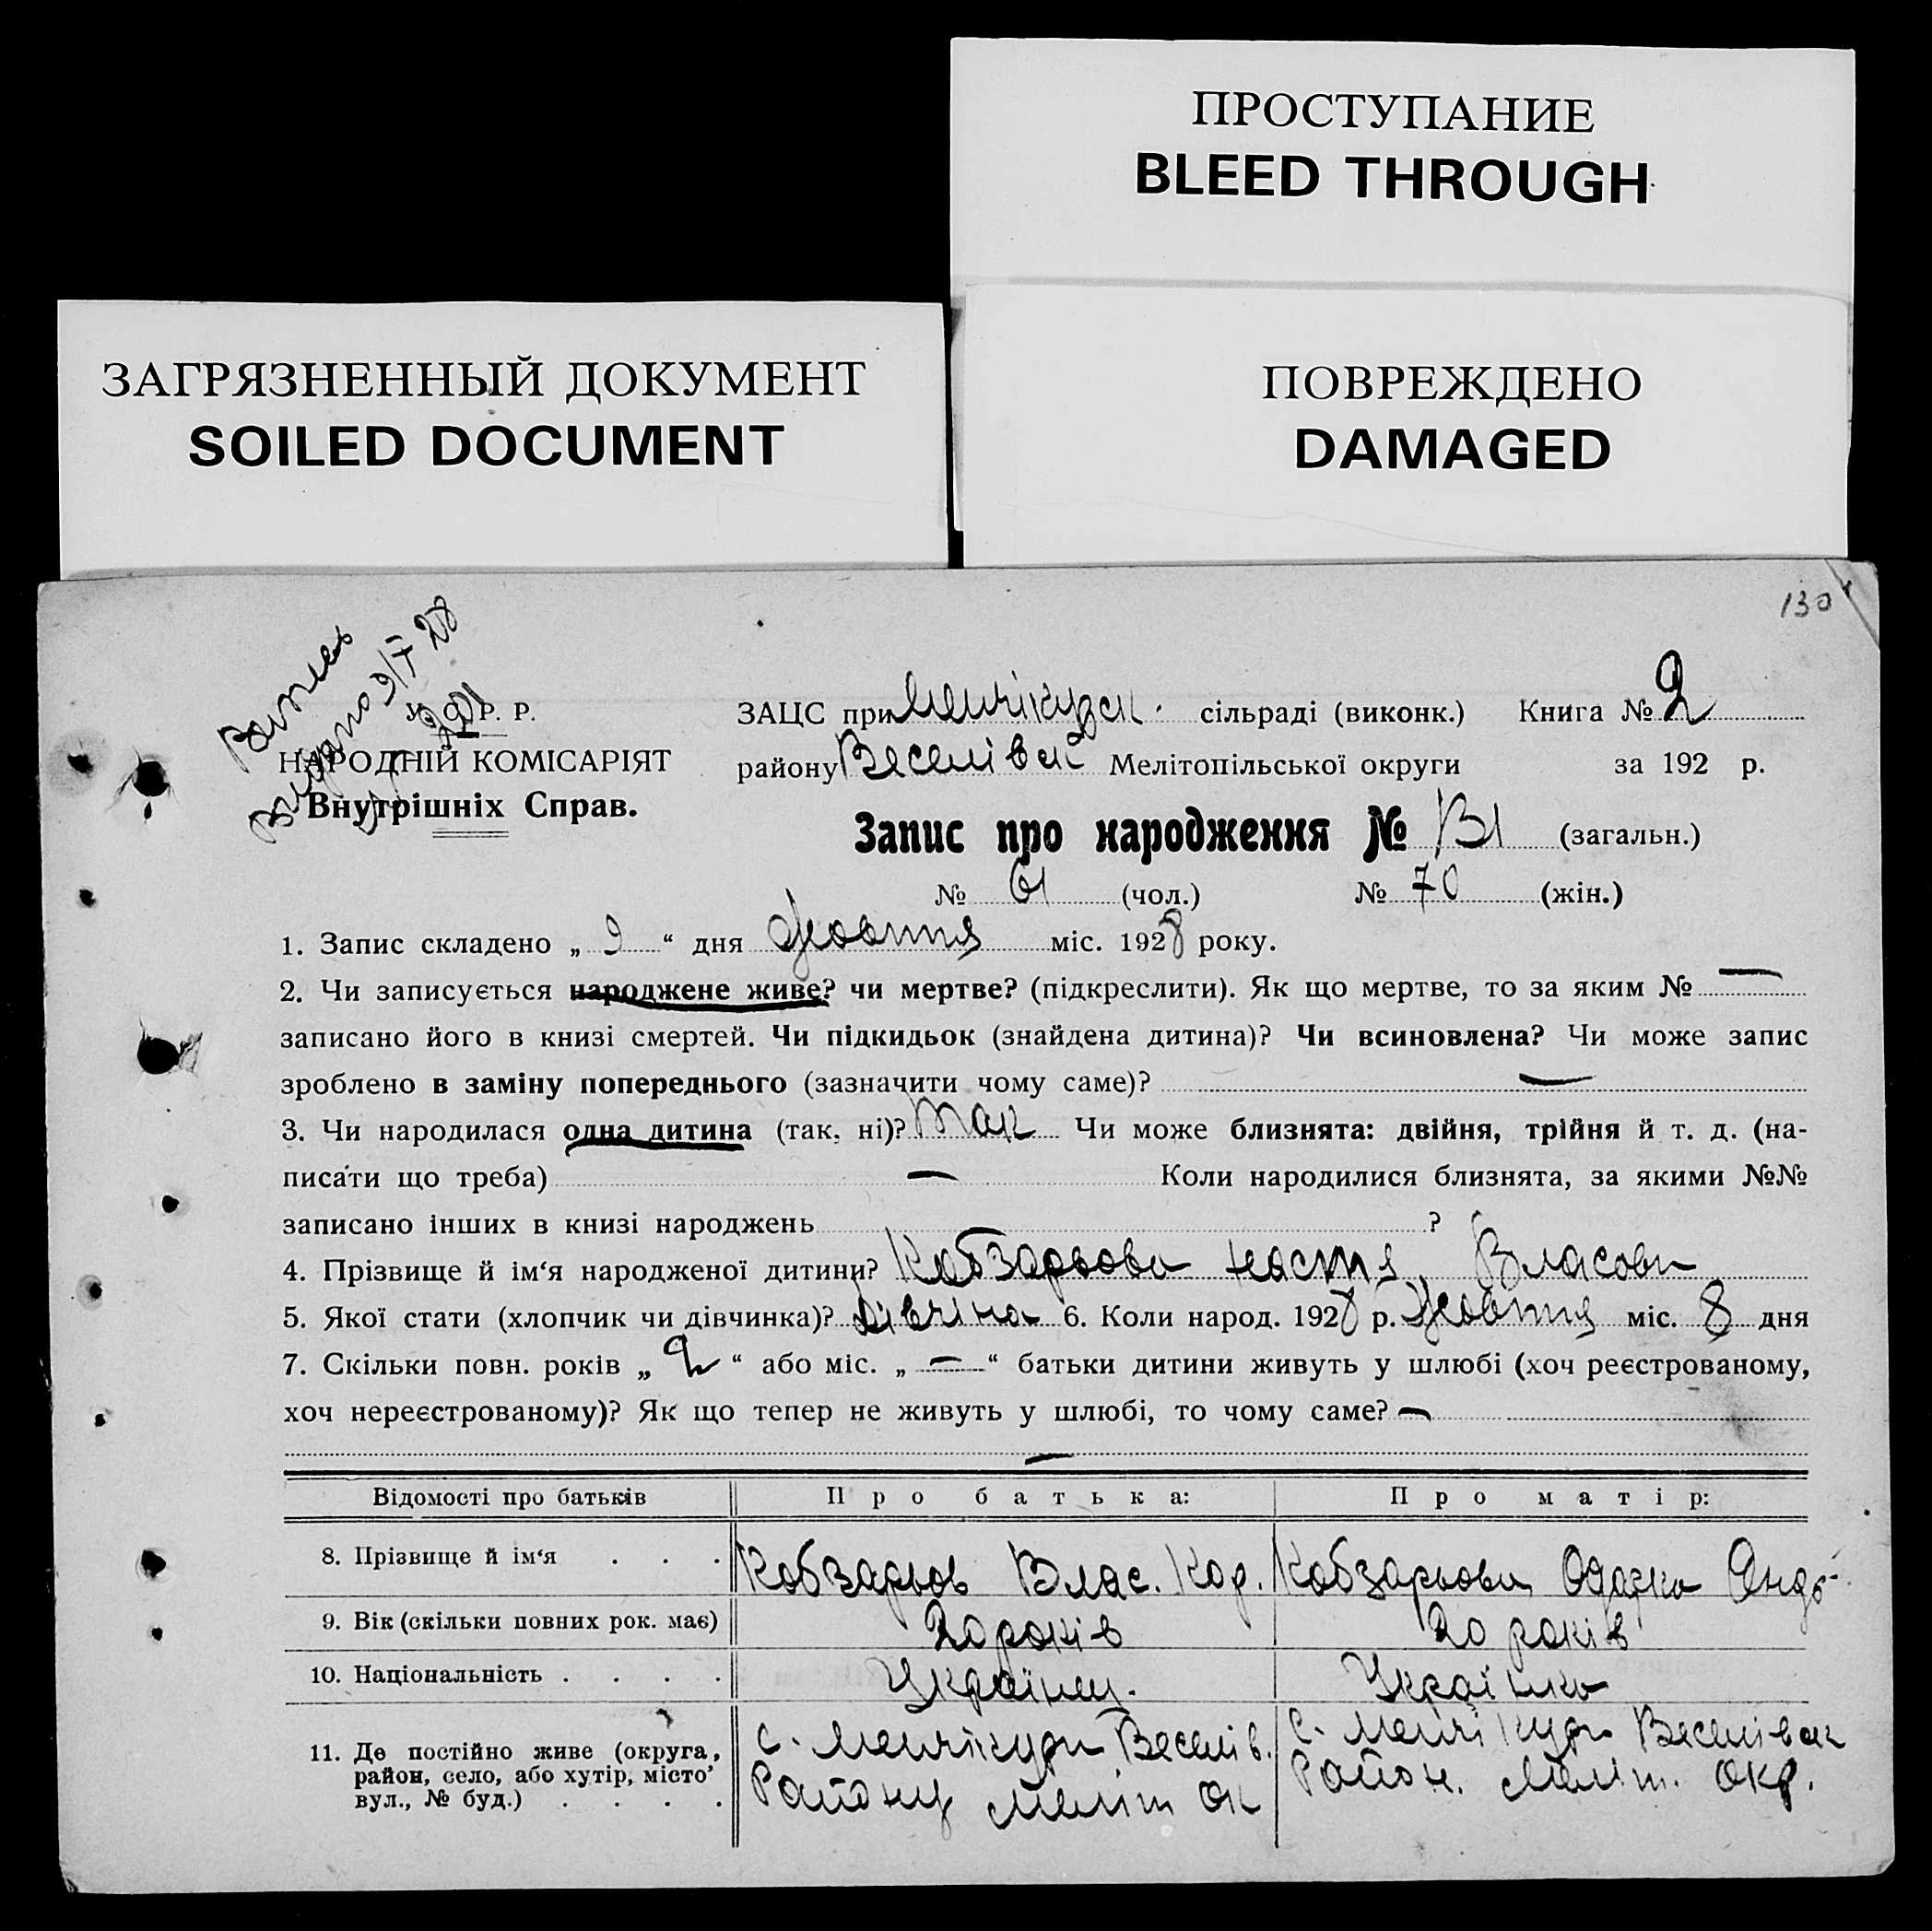 ПРОСТУПАНИЕ
BLEED THROUGH
ЗАГРЯЗНЕННЫЙ ДОКУМЕНТ
SOILED DOCUMENT
ПОВРЕЖДЕНО
DAMAGED
130
У. С. Р. Р.
НАРОДНІЙ КОМІСАРІЯТ
Внутрішніх Справ.
ЗАЦС при Менчікурск. сільраді (виконк.) Книга № 2
району Веселівск Мелітопільської округи за 192 р.
Запис про народження № 131 (загальн.)
№ 61 (чол.) № 70 (жін.)
1. Запис складено „ 9 “ дня Жовтня міс. 1928 року.
2. Чи записується народжене живе? чи мертве? (підкреслити). Як що мертве, то за яким № —
записано його в книзі смертей. Чи підкидьок (знайдена дитина)? Чи всиновлена? Чи може запис
зроблено в заміну попереднього (зазначити чому саме)? —
3. Чи народилася одна дитина (так, ні)? Так Чи може близнята: двійня, трійня й т. д. (на-
писати що треба) — Коли народилися близнята, за якими №№
записано інших в книзі народжень ?
4. Прізвище й ім‘я народженої дитини? Кобзарьова Настя Власовн
5. Якої стати (хлопчик чи дівчинка)? дівчіна 6. Коли народ. 1928 р. Жовтня міс. 8 дня
7. Скільки повн. років „ 2 “ або міс. „ — “ батьки дитини живуть у шлюбі (хоч реєстрованому,
хоч нереєстрованому)? Як що тепер не живуть у шлюбі, то чому саме? —
—
Відомості про батьків Про батька: Про матір:
8. Прізвище й ім‘я . . . Кобзарьов Влас. Кор. Кобзарьова Одарка Андр.
9. Вік (скільки повних рок. має) 20 років 20 років
10. Національність . . . . Українец. Українка
11. Де постійно живе (округа, район, село, або хутір, місто, вул., № буд.) . . . .
с. Менчікури Веселів. с. Менчікури Веселівск
Району Меліт Ок Район. Меліт. Окр.